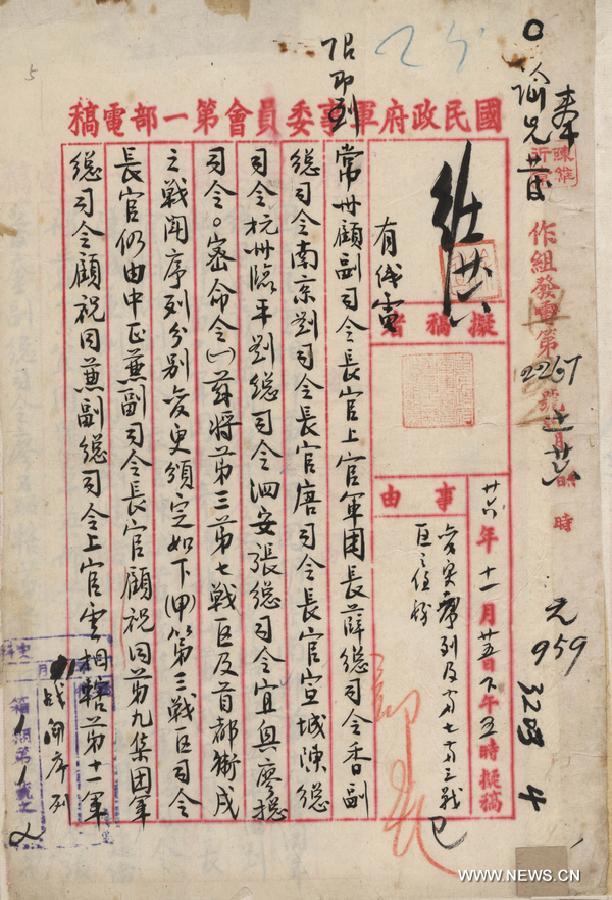 國民政府軍事委員會第一部電稿
作組發電第2267號 月 日 時
擬稿者
事由
廿六年十一月廿五日下午五時擬稿
變更序列及第七第三戰
區之任務
有戌電
即到
常州顧副司令長官上官軍團長薛總司令香副
總司令南京劉司令長官唐司令長官宣城陳總
司令杭州臨平劉總司令泗安張總司令宜興廖總
司令。密命令(一)茲將第三第七戰區及首都衛戍
之戰鬥序列分別變更頒定如下(甲)第三戰區司令
長官仍由中正兼副司令長官顧祝同第九集團軍
總司令顧祝同兼副總司令上官雲相轄第十一軍
戰鬥序列
959
3208
4
5
WWW.NEWS.CN